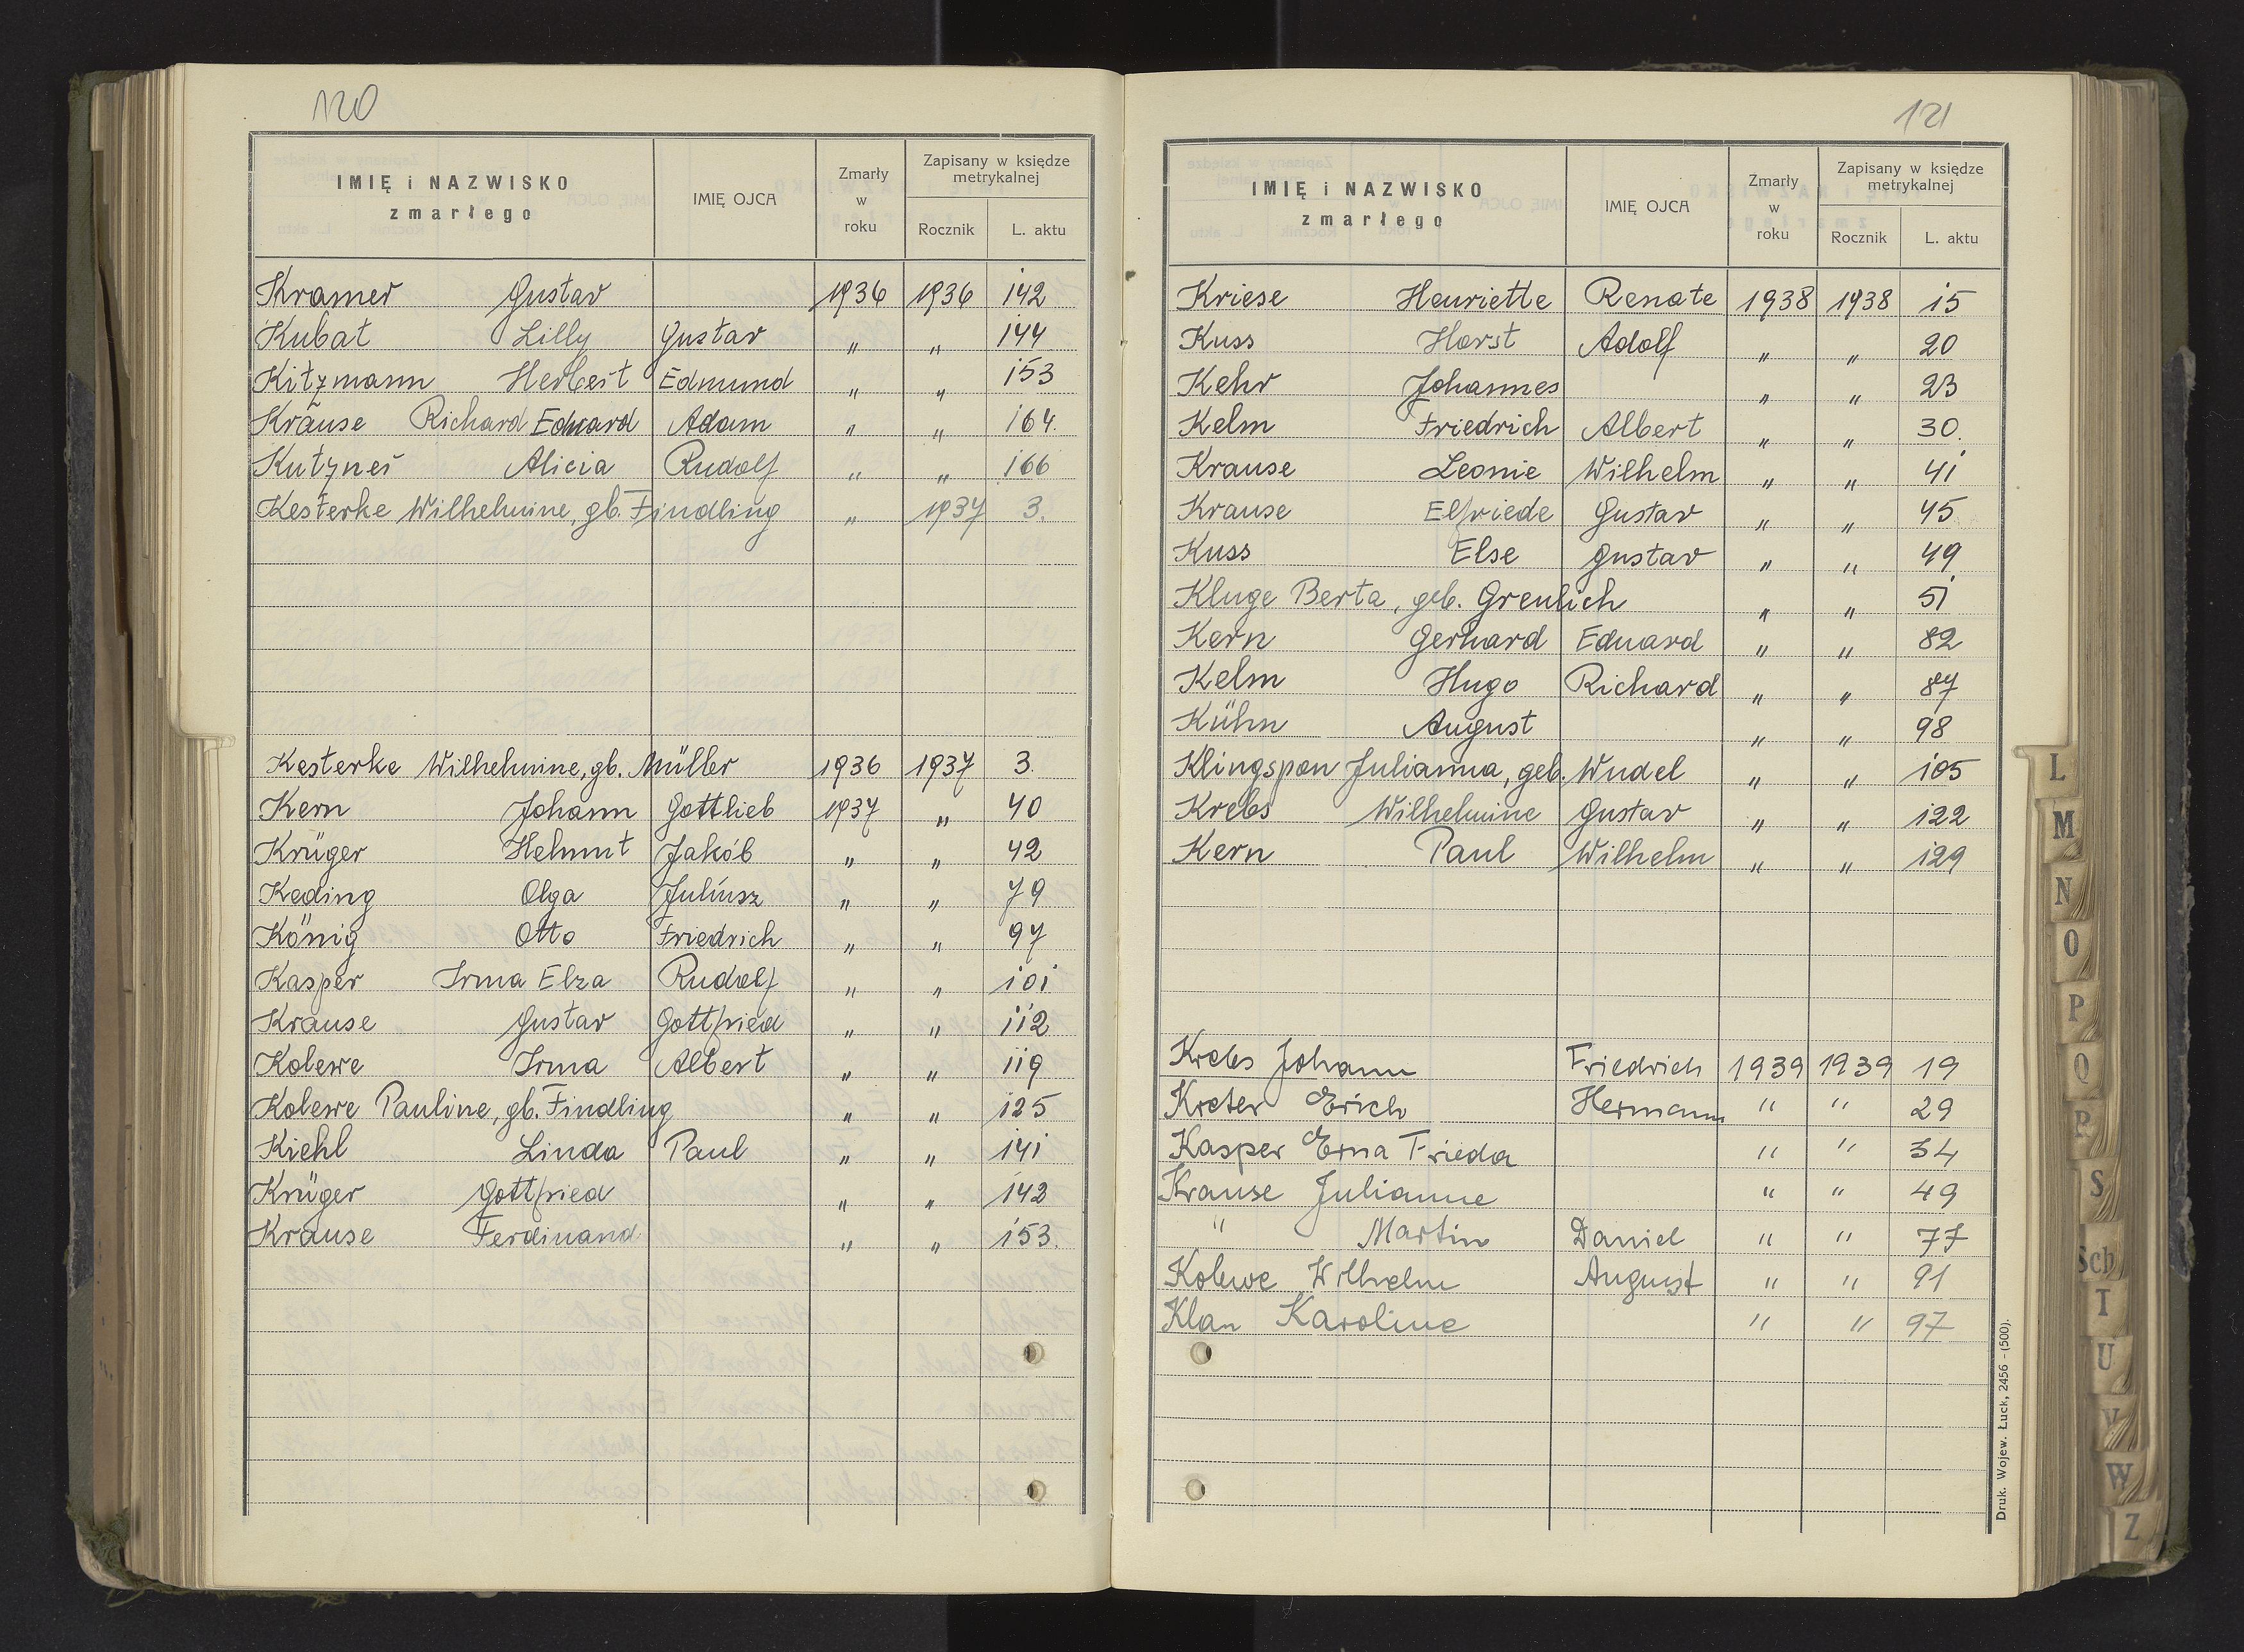 120
IMIĘ i NAZWISKO zmarłego IMIĘ OJCA Zmarły w roku Zapisany w księdze metrykalnej Rocznik L. aktu
Kramer Gustav 1936 1936 142
Kubat Lilly Gustav " " 144
Kitzmann Herbert Edmund " " 153
Krause Richard Eduard Adam " " 164.
Kutzner Alicia Rudolf " " 166
Kesterke Wilhelmine, gb. Findling " 1937 3.
Kesterke Wilhelmine, gb. Müller 1936 1937 3.
Kern Johann Gottlieb 1937 " 40
Krüger Helmut Jakób " " 42
Keding Olga Juliusz " " 79
König Otto Friedrich " " 97
Kasper Irma Elza Rudolf " " 101
Krause Gustav Gottfried " " 112
Kolewe Irma Albert " " 119
Kolewe Pauline, gb. Findling " " 125
Kiehl Linda Paul " " 141
Krüger Gottfried " " 142
Krause Ferdinand " " 153.
121
IMIĘ i NAZWISKO zmarłego IMIĘ OJCA Zmarły w roku Zapisany w księdze metrykalnej Rocznik L. aktu
Kriese Henriette Renate 1938 1938 15
Kuss Horst Adolf " " 20
Kehr Johannes " " 23
Kelm Friedrich Albert " " 30.
Krause Leonie Wilhelm " " 41
Krause Elfriede Gustav " " 45
Kuss Else Gustav " " 49
Kluge Berta, geb. Greulich " " 51
Kern Gerhard Eduard " " 82
Kelm Hugo Richard " " 87
Kühn August " " 98
Klingspon Julianna, geb. Wudel " " 105
Krebs Wilhelmine Gustav " " 122
Kern Paul Wilhelm " " 129
Krebs Johann Friedrich 1939 1939 19
Kreter Erich Hermann " " 29
Kasper Erna Frieda " " 34
Krause Julianne " " 49
" Martin Daniel " " 77
Kolewe Wilhelm August " " 91
Klan Karoline " " 97
Druk. Wojew. Łuck, 2456 - (500).
L
M
N
O
P
Q
P
S
Sch
T
U
V
W
Z